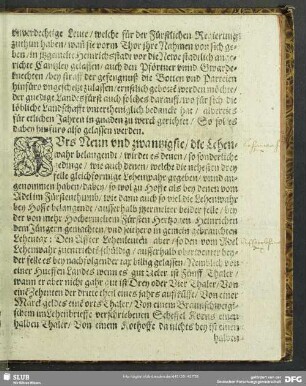 vnverdechtige Leute / welche für der Fürstlichen Regierung
zuthun haben / wañ sie vorm Thor jhre Nahmen von sich ge-
ben / in gemelte Heinrichstadt vor die Newestadt ange-
richte Cantzley gelassen / auch den Pförtner vnnd
knechten / bey straff der gefengnüß die Botten vnd Parteien
hinfüro vngeseifft zulassen / ernstlich geboten werden möchte /
der gnedige Landesfürst auch solches darauff / wo für sich die
löbliche Landschafft vnterthenglich bedanckt hat / allbereit
für etlichen Jahren in gnaden zu werck gerichtet / So sol es
dabey hinfuro also gelassen werden.
FVrs Neun vnd zwantzigste / die Lehen-
wahr belangende / wie der es denen / so sonderliche
gedinge / wie auch denen / welche die nechsten drey
felle gleichförmige Lehenwahr gegeben / vnnd an-
genommen haben / dabey / so wol zu Hoffe als bey denen vom
Adel im Fürstenthumb / wie dann auch so viel die Lehenwahr
bey Hoffe belangende / ausserhalb gemelter beider felle / bey
der von mehr Hochermelten Fürsten Hertzogen Heinrichen
dem Jüngern gemachten / vnd seithero in gemein gebrauchten
Lehentax: Den Affter Lehenleuten aber / so den vom Adel
Lehenwahr zuentrichten schüldig / ausserhalb oberwenter bey-
der felle es bey nachfolgender tax billig gelassen / Nemblich von
einer Huffen Landes wenn es gut Acker ist Fünff Thaler /
wann er aber nicht gahr gut ist Drey oder Vier Thaler / Von
eine Zehenten der dritte theil eines jahrs auffkunfft / Von einer
Marck geldes eins orts Thaler / Von einem Braunschweigi-
schem im Lehenbrieffe verschriebenen Scheffel Korns einen
halben Thaler / Von einem Kothoffe da nichts bey ist einen
halben